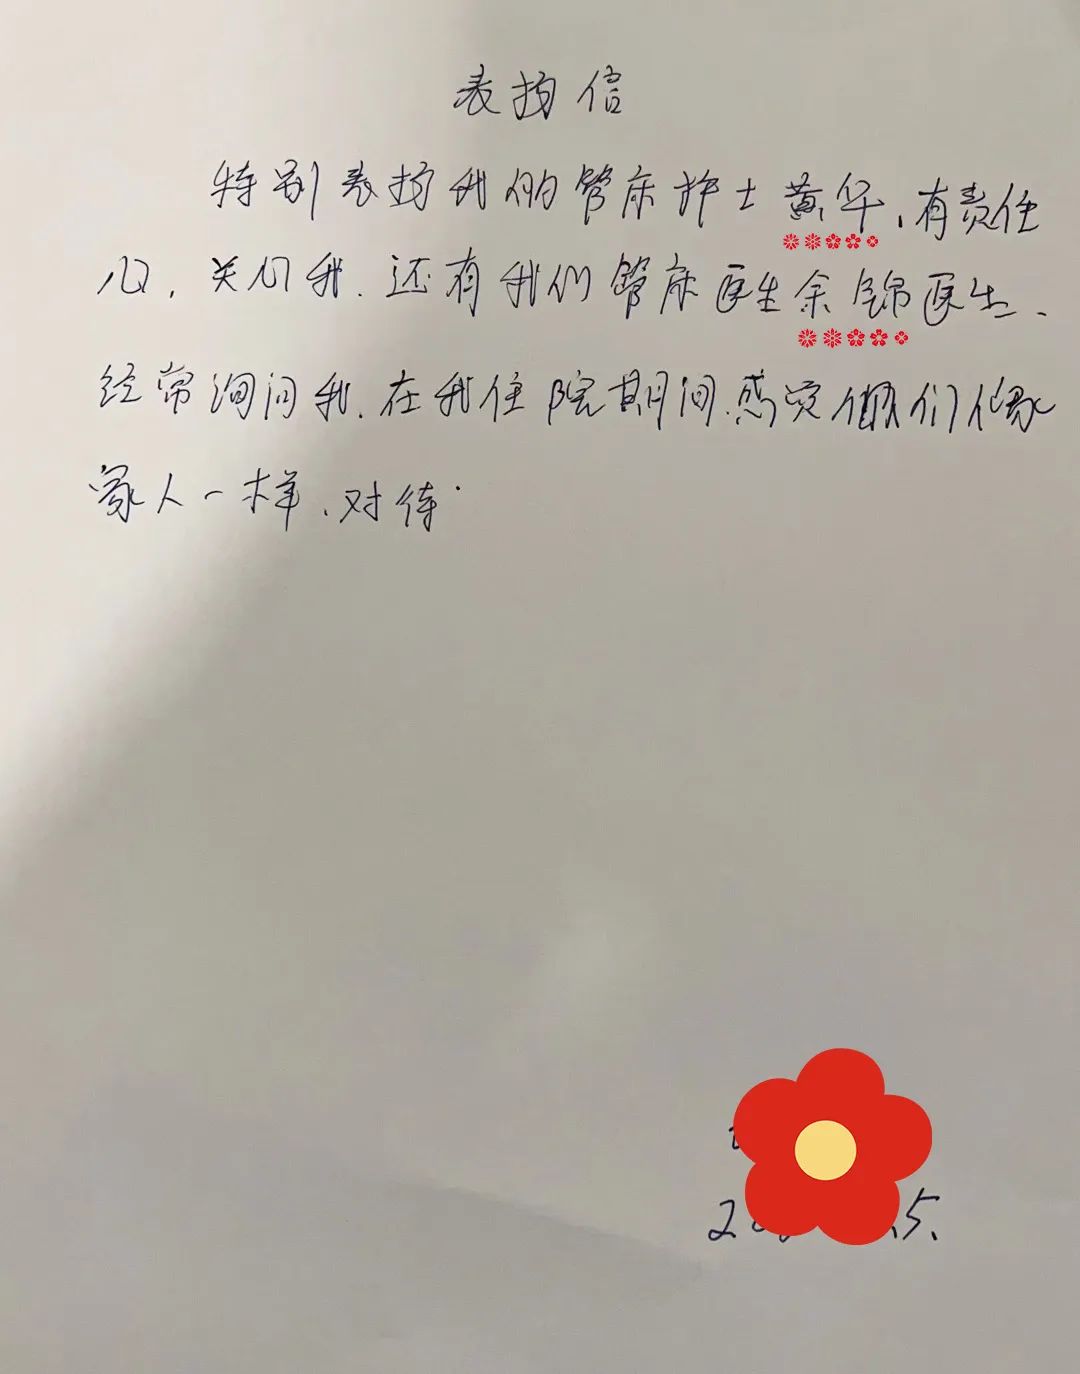 表扬信
特别表扬我的管床护士黄华、有责任
心，关心我．还有我们管床医生余锦医生、
经常询问我．在我住院期间．感觉他们像
家人一样．对待．
5.